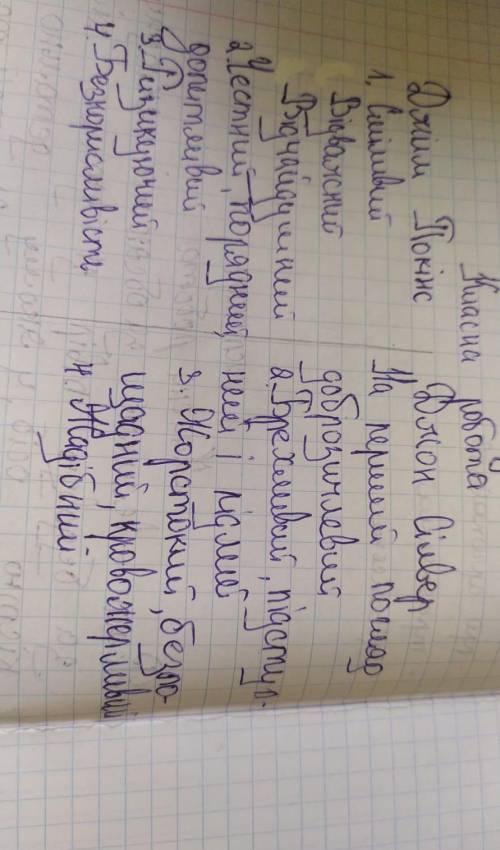 Класна робота
Джім Гокінс
1. Сміливий
Відважний
Відчайдушний
2. Чесний, порядний,
допитливий
3. Ризикуючий
4. Безкорисливість
Джон Сілвер
На перший погляд
доброзичливий
2. Брехливий, підступ-
ний і підлий
3. Жорстокий, безпо-
щадний, кровожерливий
4. Жадібний